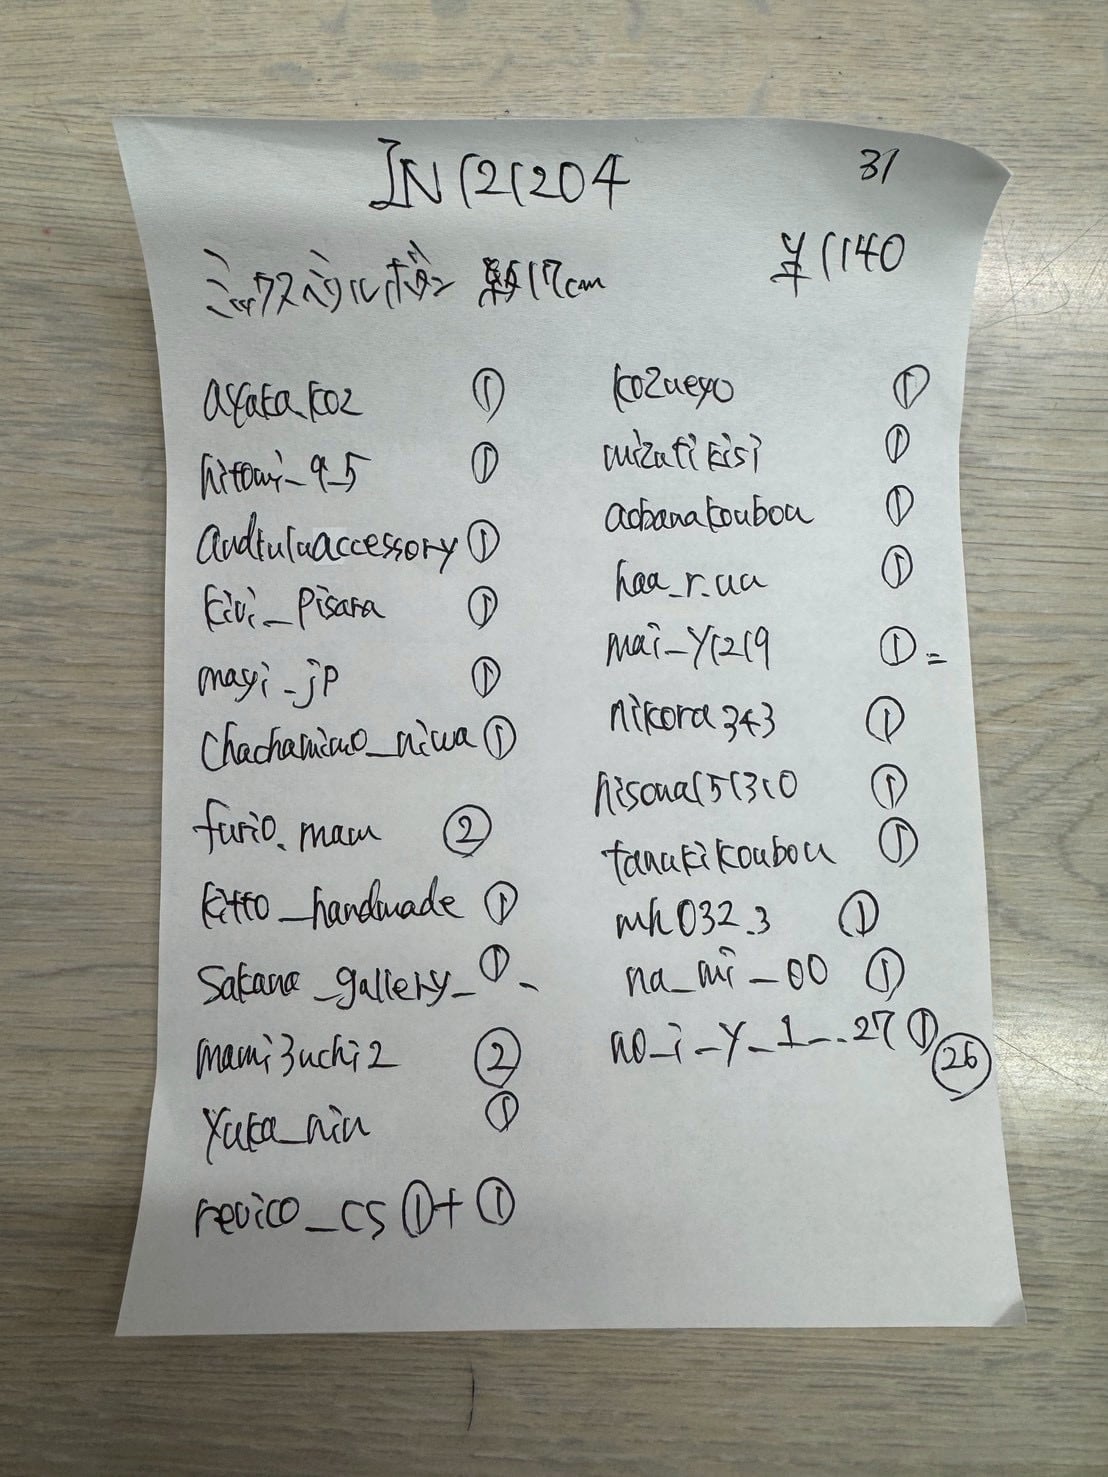 IN121204
31
ミックスパールボタン 約17cm
¥1140
ayaka.koz ①
hitomi_9_5 ①
andluluaccessory ①
kivi_pisara ①
mayi_jp ①
chachamimo_niwa ①
furio.mam ②
kitto_handmade ①
sakana_gallery_ ①
mami3uchi2 ②
yuka_niu ①
revico_cs ①+①
kozueyo ①
mizutikisi ①
aobanakoubou ①
haa_r.uu ①
mai_y1219 ①=
nikora343 ①
hisona151310 ①
tanukikoubou ①
mh032.3 ①
na_mi_00 ①
no_i_y_1_..27 ①
㉖